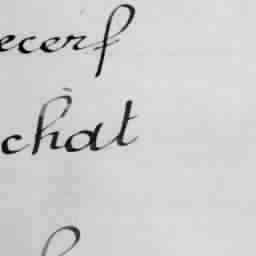 ecerf
chat